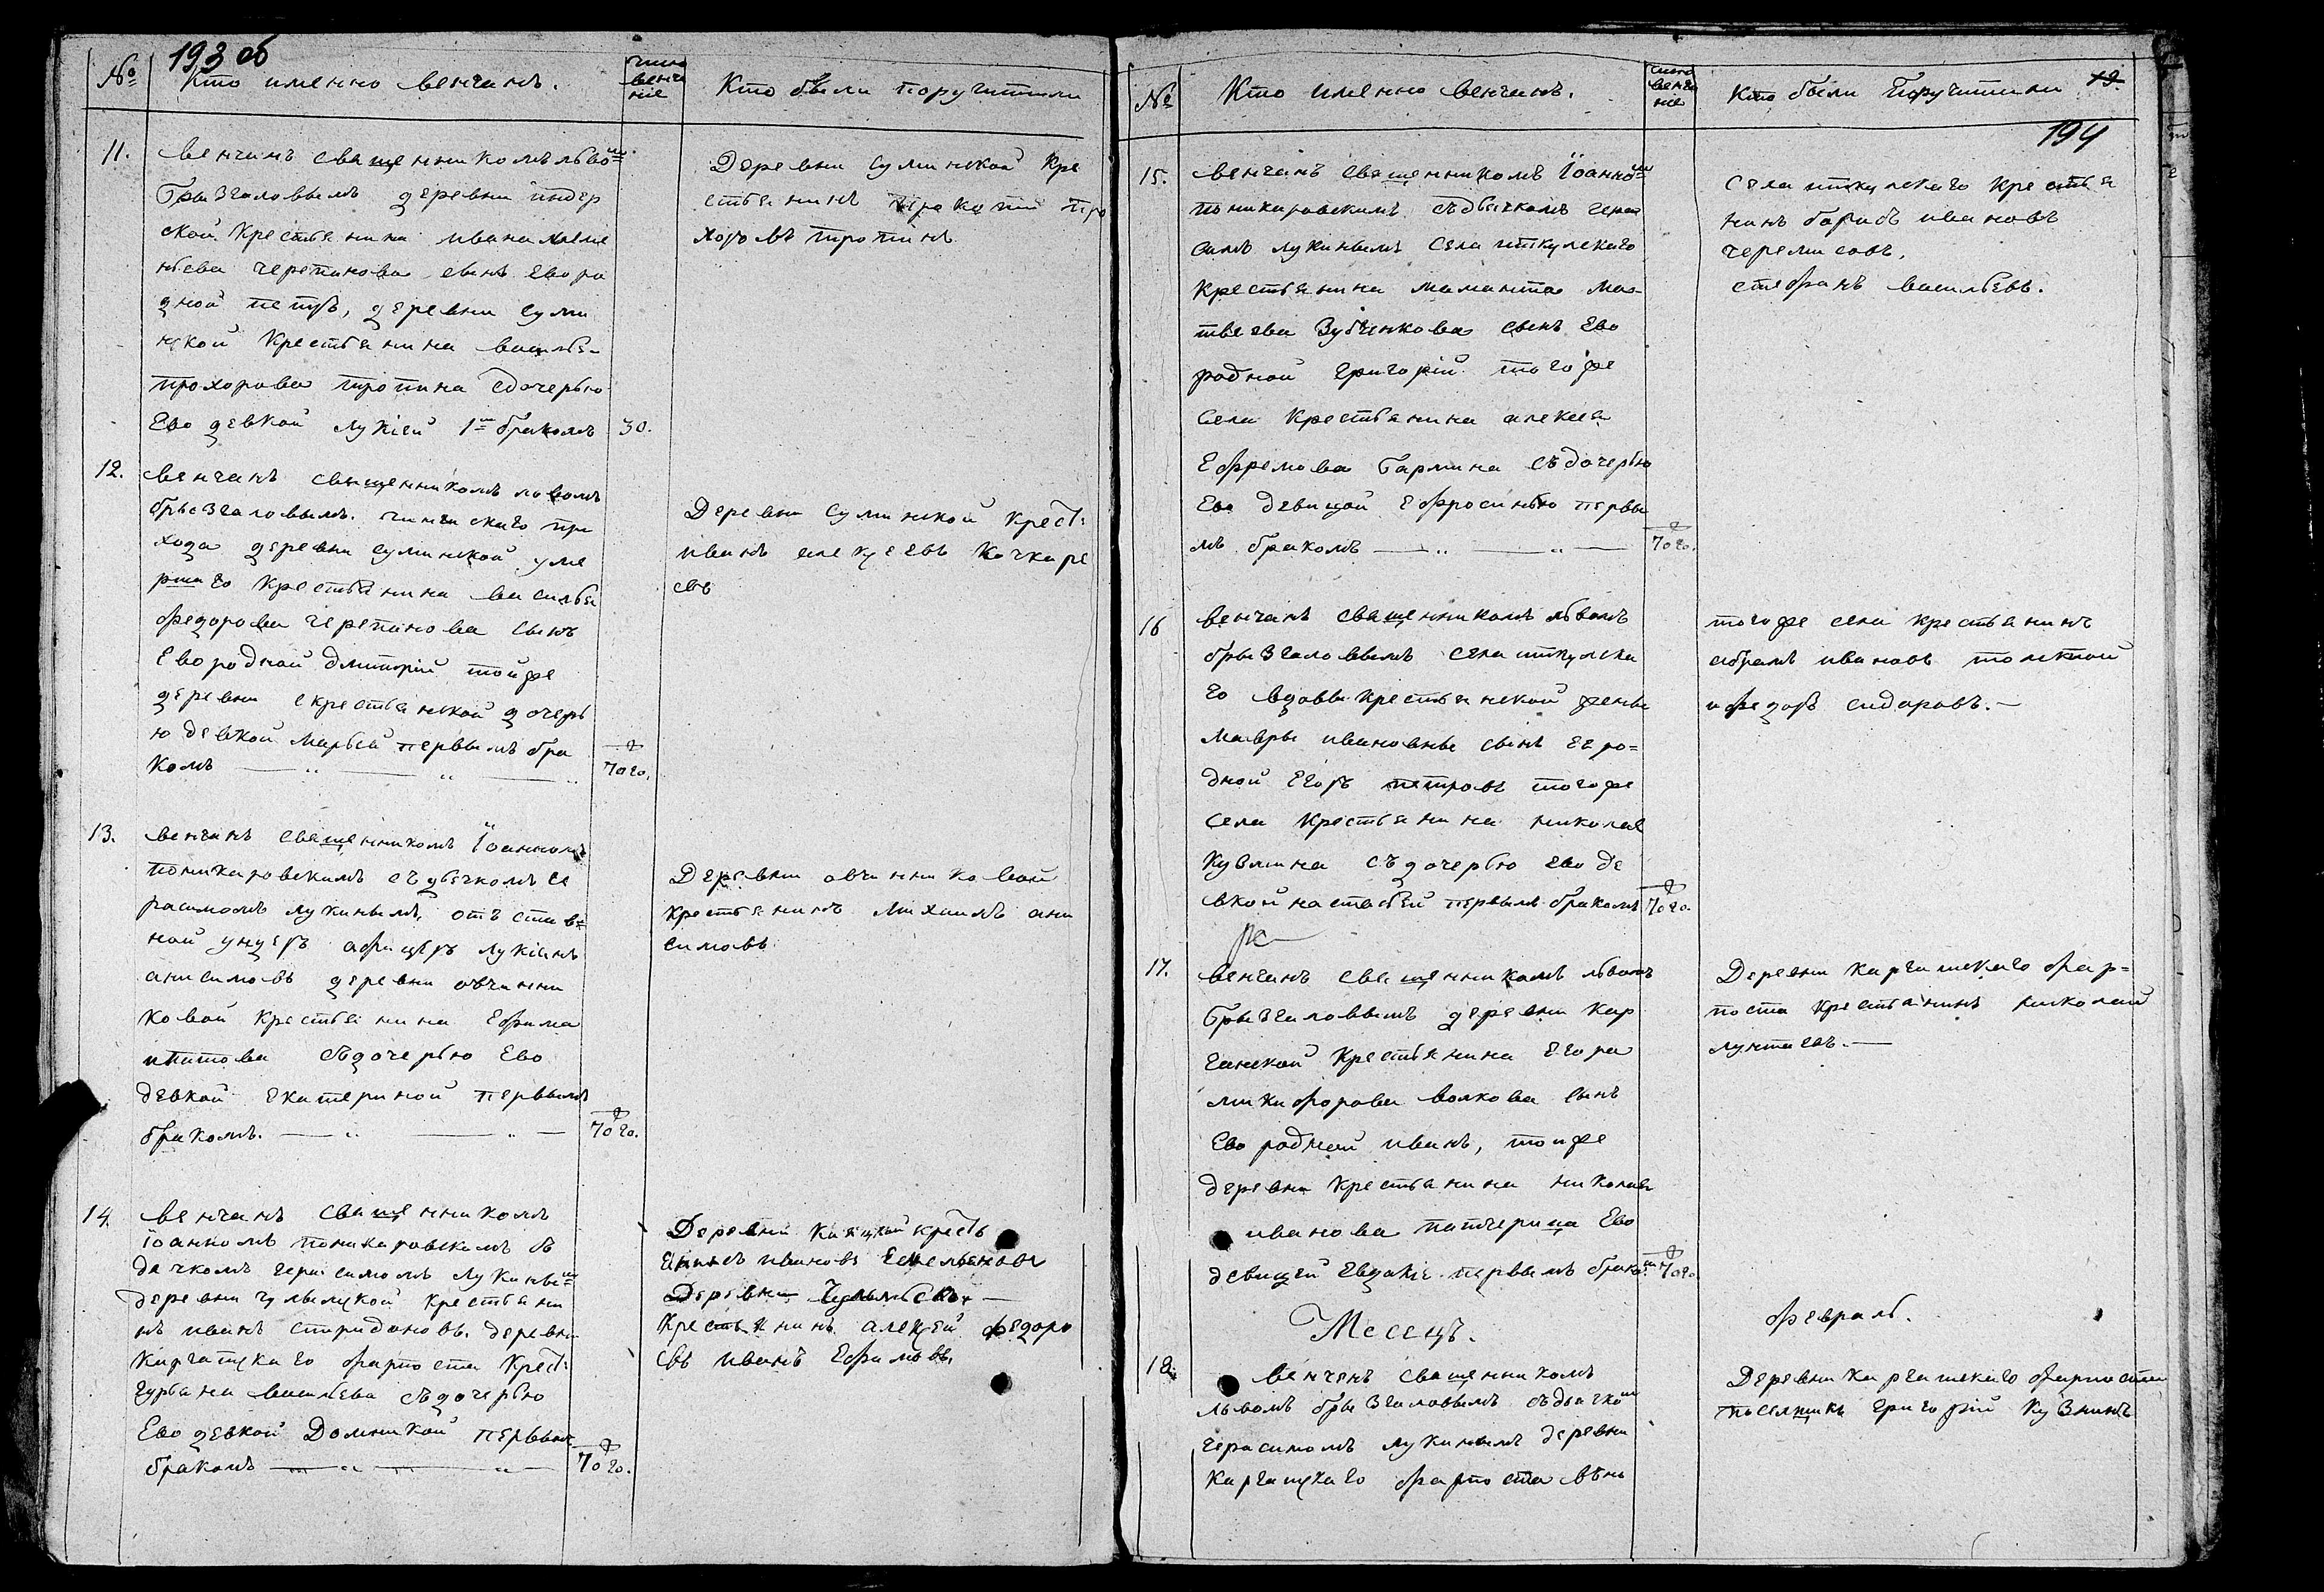 193 об
№
Кто именно венчанъ.
число
венча
ніе
Кто были поручители
11.
венчанъ священникомъ львом
Брызгаловымъ деревни индер
ской крестьянина ивана
черепанова сынъ Ево ро
дной петръ, деревни суми
нской крестьянина василья
прохорова тропина сдочерью
Ево девкой лукіей 1м бракомъ
30.
Деревни суминской кре
стьянинъ прокопий про
хоровъ тропинъ
12.
венчанъ священникомъ львомъ
брызгаловымъ. чингискаго при
хода деревни суминской уме
ршаго крестьянина василья
федорова черепанова сынъ
Ево родной дмитрій тойже
деревни скрестьянской дочерь
ю девкой марьей первымъ бра
комъ
того.
Деревни суминской крест:
иванъ алексеевъ кочкаре
въ
13.
венчанъ священникомъ Іоанномъ
поникаровскимъ съ дьячкомъ ге
расимомъ лукинымъ, отъстав=
ной ундеръ афицеръ лукіанъ
анисимовъ деревни овчинни
ковой крестьянина Ефима
титова съдочерью Ево
девкой екатериной первымъ
бракомъ.
того.
Деревни овчинниковой
крестьянинъ михаилъ ани
симовъ
14.
венчанъ священникомъ
Іоанномъ поникаровскимъ съ
дячкомъ герасимомъ лукины=м
деревни чулымской крестьяни
нъ иванъ спиридоновъ. деревни
каргатскаго форпоста крест:
гурьяна васильева съдочерью
Ево девкой Домникой первымъ
бракомъ
того.
Деревни каяцкой кресть
янинъ ивановъ Емельяновъ
Деревни Чулымской
крестьянинъ алексей федоро
въ иванъ Ефимовъ.
№
Кто именно венчанъ.
число
венча
ніе
Кто были Поручители
19.
194
15.
венчанъ священникомъ Іоанном
поникаровскимъ съдьячкомъ гера
симъ лукинымъ села иткулскаго
крестьянина маманта ма-
твеева Зубенкова сынъ Ево
родной григорій тогоже
села крестьянина алексея
Ефремова Гармина съдочерью
Ево девицой Ефросинью первы
мъ бракомъ
того.
Села иткулскаго крестья
нинъ борисъ ивановъ
черемисовъ,
стефанъ васильевъ.
16
венчанъ священникомъ львомъ
брызгаловымъ села иткулска
го вдовы крестьянской жены
мавры ивановны сынъ ее ро=
дной Егоръ петровъ тогоже
села крестьянина николая
кузмина съдочерью ево де
вкой настасьей первымъ бракомъ
того.
тогоже села крестьянинъ
абрамъ ивановъ толстой
и федоръ сидоровъ.
17.
венчанъ священникомъ львомъ
Брызгаловымъ деревни кар
ганской крестьянина Егора
микифорова волкова сынъ
Ево родной иванъ, тоиже
деревни крестьянина николая
иванова патчерица Ево
девицей Евдокіе первымъ браком
того
Деревни каргатскаго фар=
поста крестьянинъ николай
лунтаевъ.
Месецъ.
февраль.
18.
венченъ священникомъ
львомъ брызгаловымъ съдьячком
герасимомъ лукинымъ деревни
каргатскаго фарпоста вѣнъ
Деревни каргатскаго фарпоста
посельщикъ григорій кузнинъ